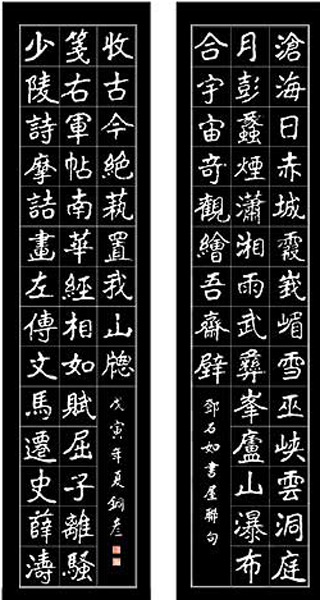 滄海日赤城霞峩嵋雪巫峽雲洞庭
月彭蠡煙瀟湘雨武彝峯廬山瀑布
合宇宙奇觀繪吾齋壁
鄧石如書屋聯句
少陵詩摩詰畫左傳文馬遷史薛濤
箋右軍帖南華經相如賦屈子離騷
收古今絶蓺置我山牕
戊寅年夏銅彥